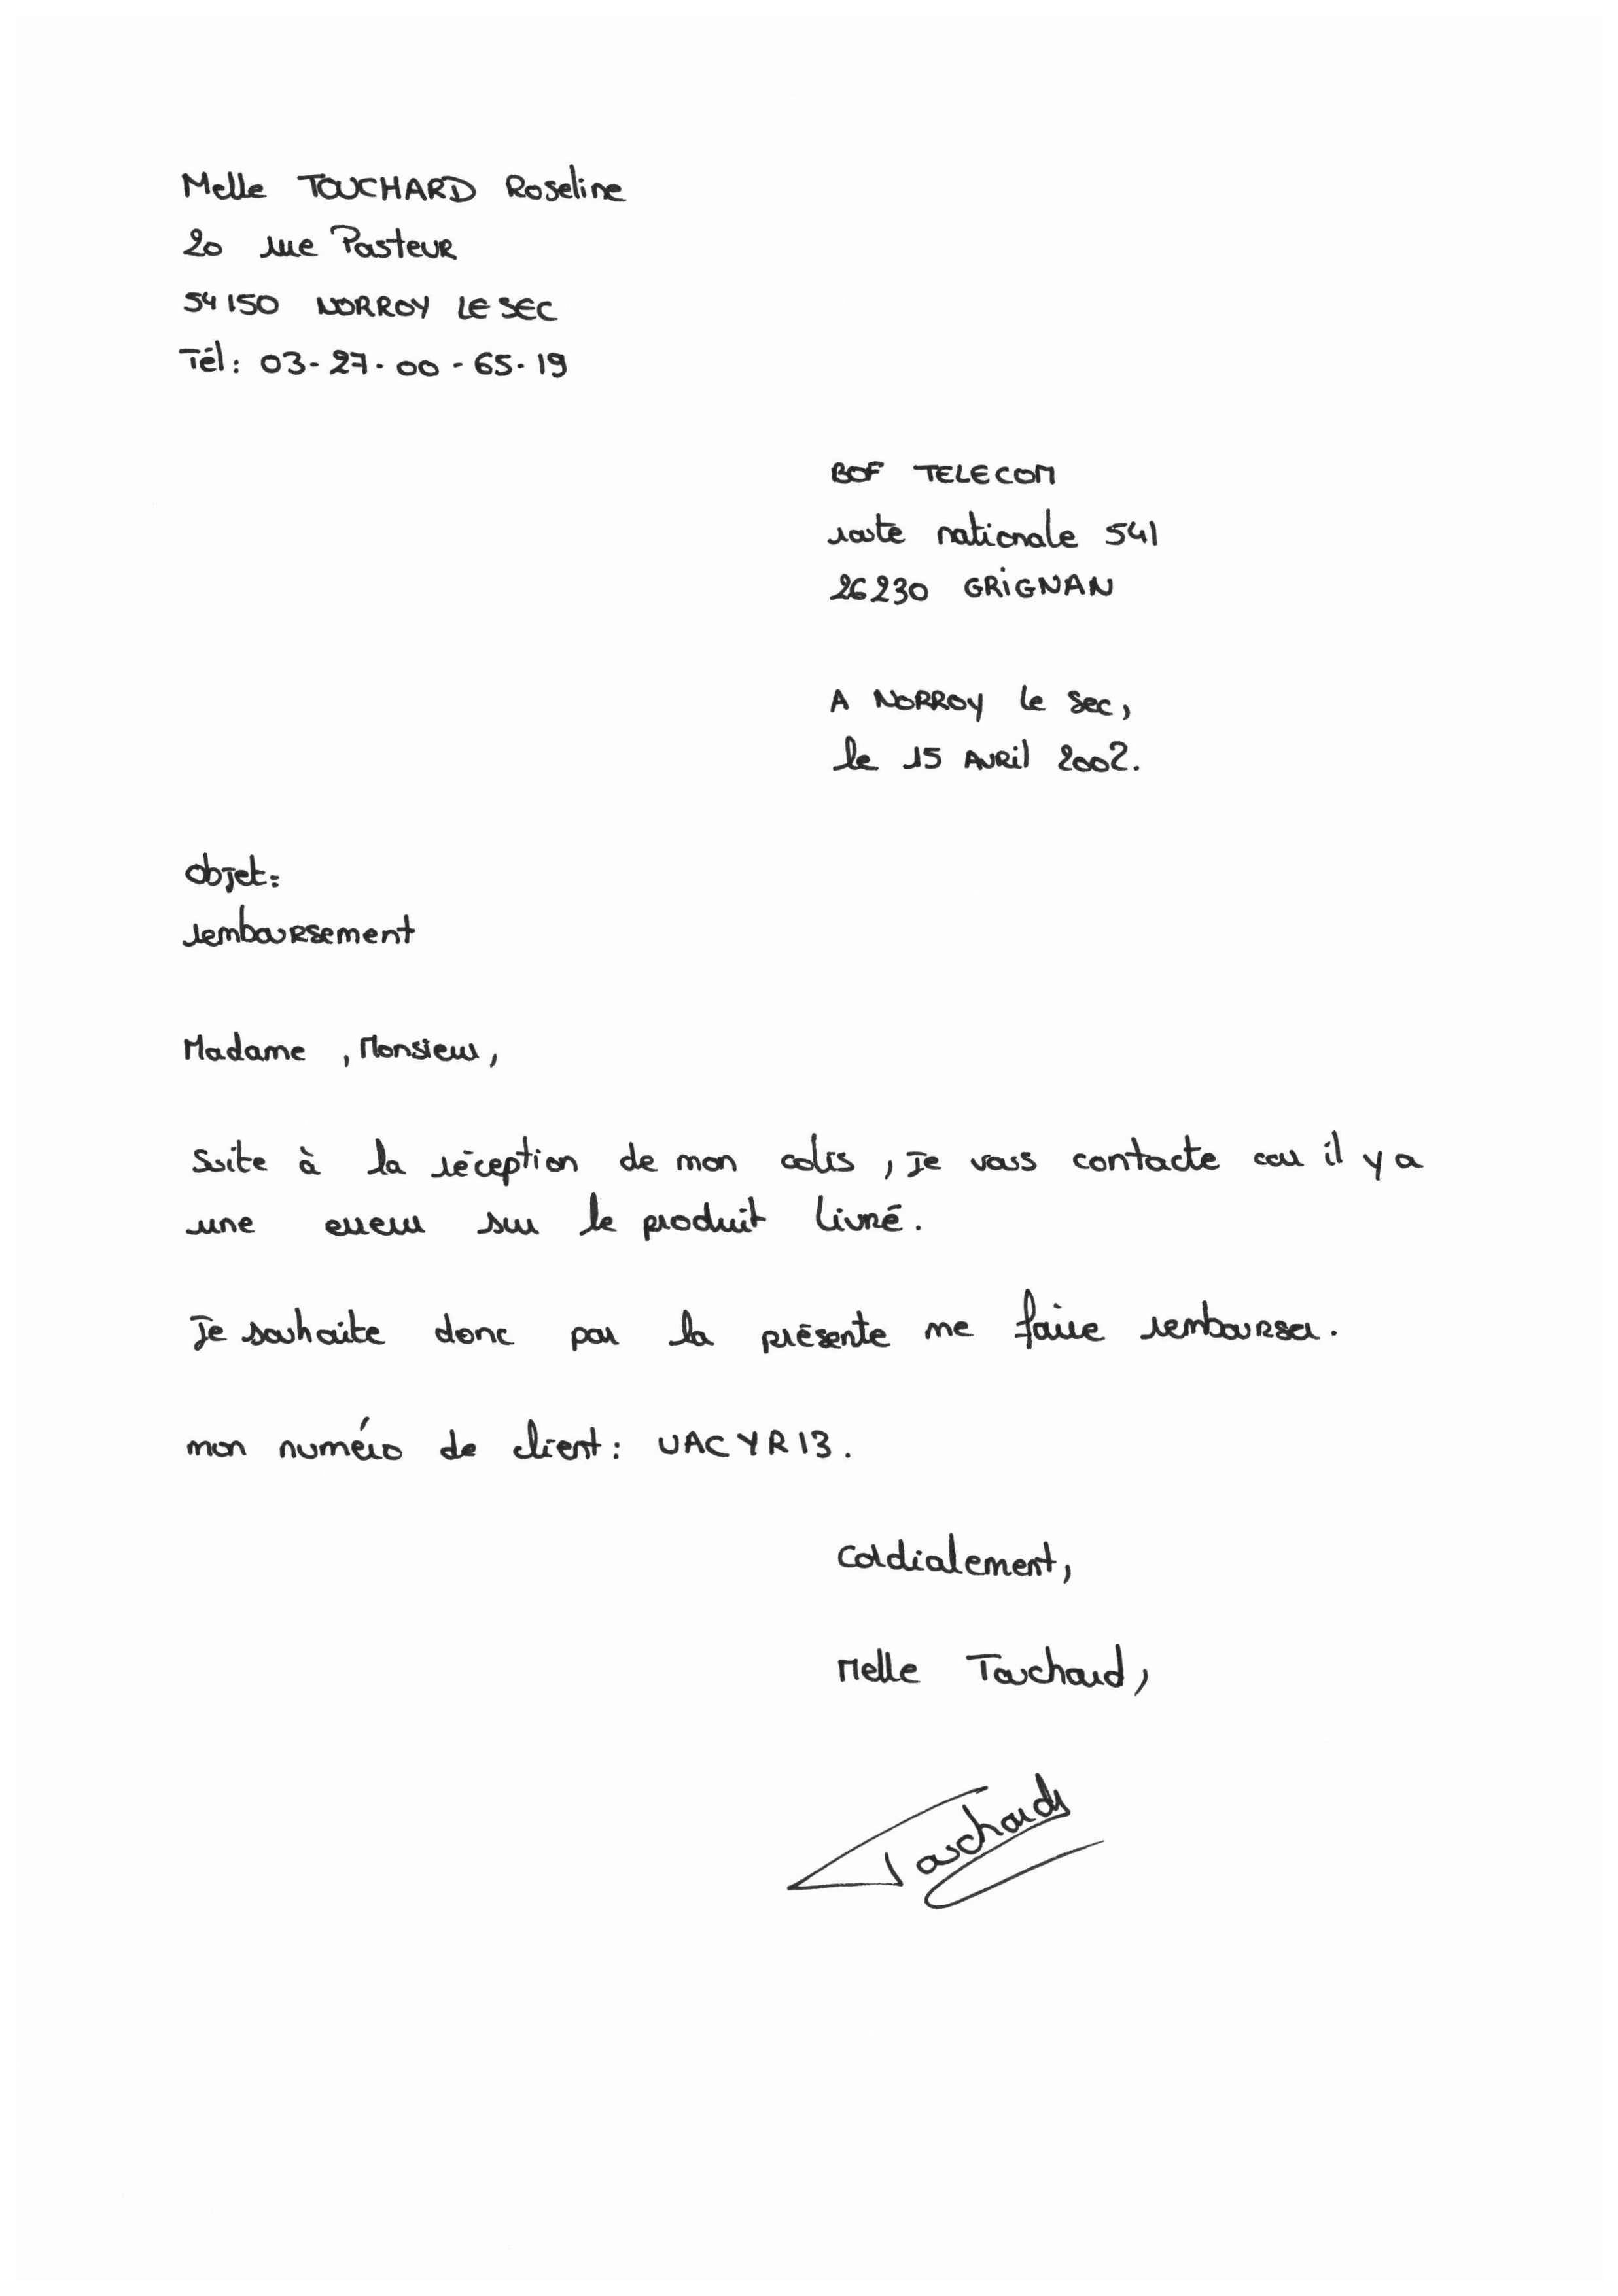 Melle TOUCHARD Roseline
20 rue Pasteur
54150 NORROY LE SEC
Tél: 03-27-00-65-19
BOF TELECOM
route nationale 541
26230 GRIGNAN
A NORROY le Sec,
le 15 Avril 2002.
Objet:
remboursement
Madame , Monsieur,
Suite à la réception de mon colis, je vous contacte car il y a
une erreur sur le produit livré.
Je souhaite donc par la présente me faire rembourser.
mon numéro de client: UACYR13.
Cordialement,
Melle Touchard,
Touchard